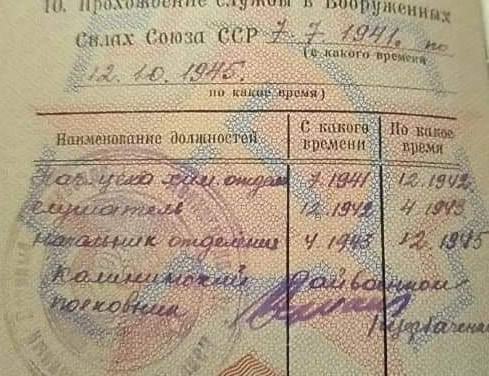 10. Прохождение службы в Вооруженных
Силах Союза ССР 7. 7. 1941. по
(с какого времени
12. 10. 1945.
по какое время)
Наименование должностей
С какого времени
По какое время
хим. отдел 7.1941 12.1942
слушатель 12.1942 4.1943
начальник отделения 4.1943 12.1945
Калининский Райвоенком
полковник